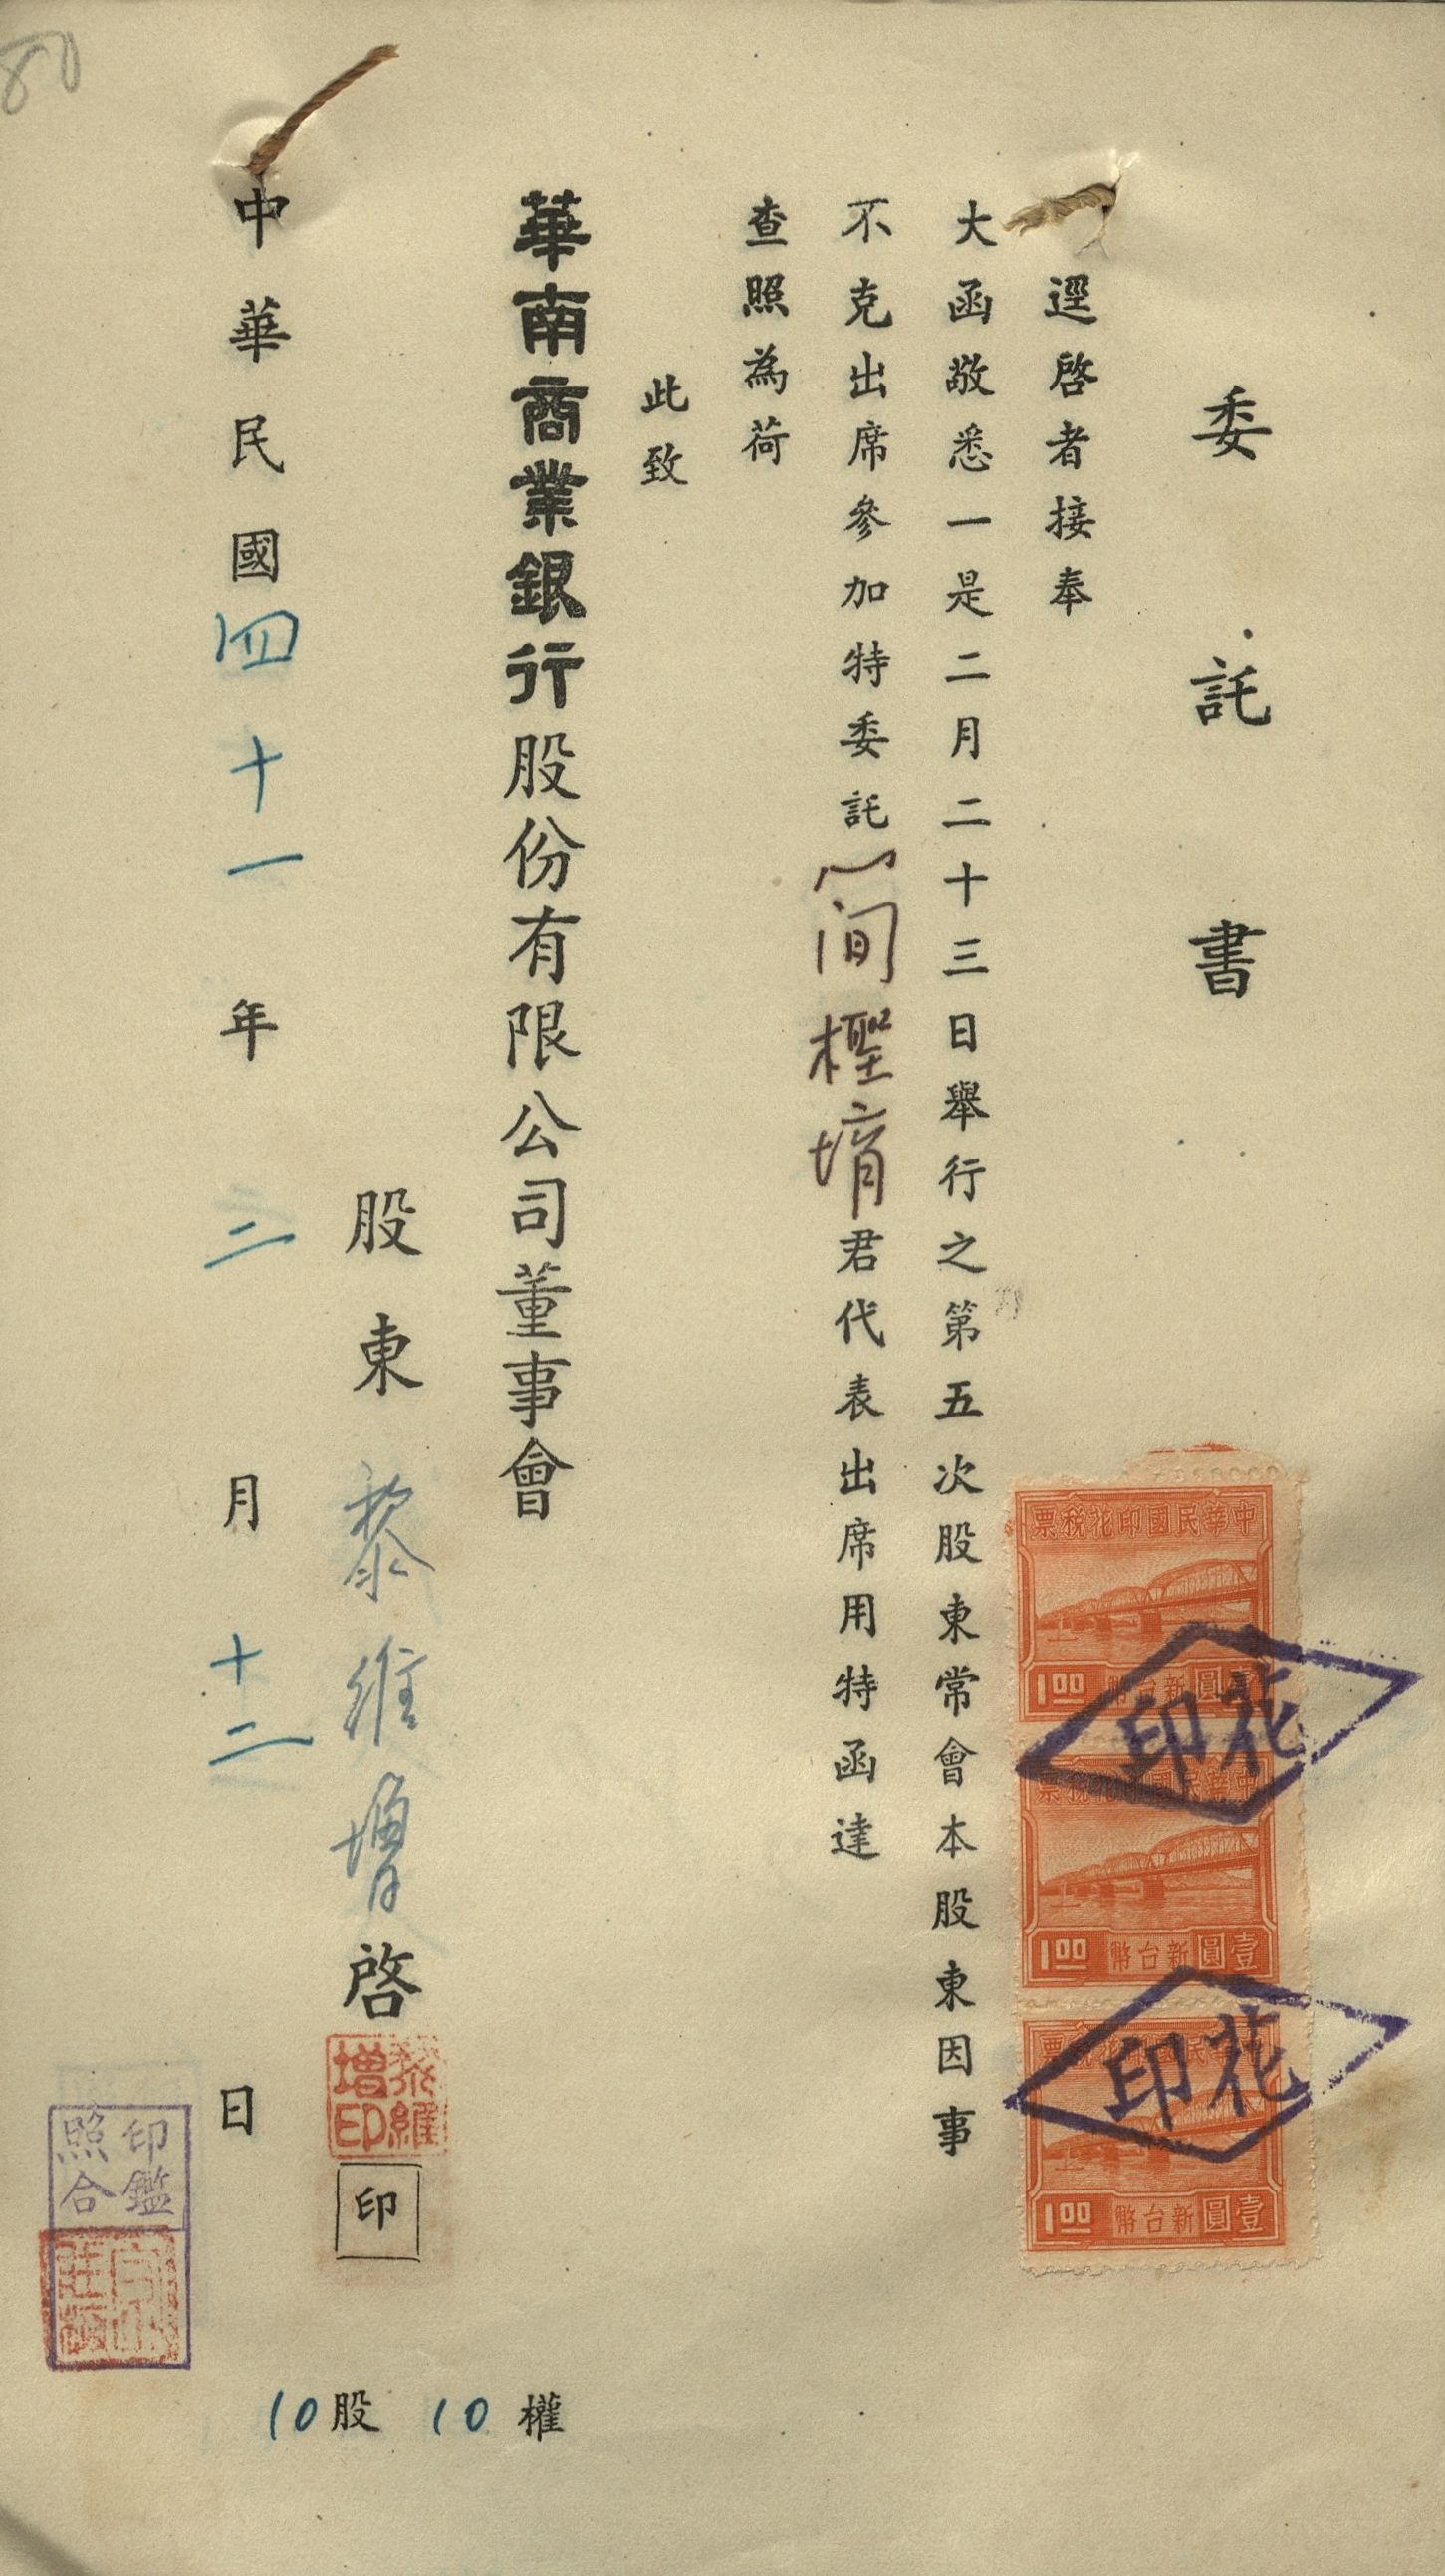 委託書
逕啓者接奉
大函敬悉一是二月二十三日舉行之第五次股東常會本股東因事
不克出席參加特委託簡檉堉君代表出席用特函達
查照為荷
此致
華南商業銀行股份有限公司董事會
股東黎維增啓
印
中華民國四十一年二月十二日
10股 10權
黎維增印
印鑑照合
中華民國印花稅票
1.00 新台幣壹圓
中華民國印花稅票
1.00 新台幣壹圓
中華民國印花稅票
1.00 新台幣壹圓
印花
印花
80